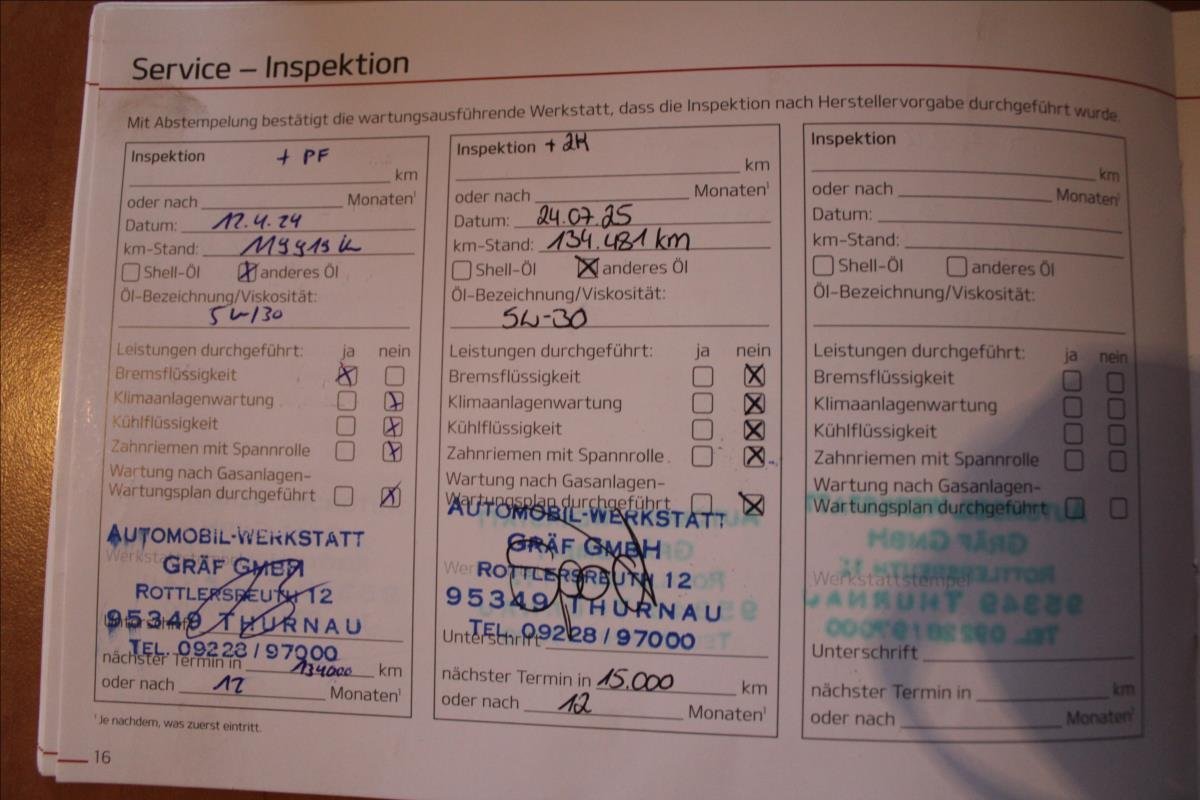 Service – Inspektion
Mit Abstempelung bestätigt die wartungsausführende Werkstatt, dass die Inspektion nach Herstellervorgabe durchgeführt wurde.
Inspektion + PF
km
oder nach Monaten¹
Datum: 12.4.24
km-Stand: 119913 k
Shell-Öl anderes Öl
Öl-Bezeichnung/Viskosität:
5W/30
Leistungen durchgeführt: ja nein
Bremsflüssigkeit
Klimaanlagenwartung
Kühlflüssigkeit
Zahnriemen mit Spannrolle
Wartung nach Gasanlagen-
Wartungsplan durchgeführt
AUTOMOBIL-WERKSTATT
Werkstattstempel
GRÄF GMBH
ROTTLERSREUTH 12
95349 THURNAU
Unterschrift
TEL. 09228/97000
nächster Termin in 134000 km
oder nach 12 Monaten¹
Inspektion + 2K
km
oder nach Monaten¹
Datum: 24.07.25
km-Stand: 134.481 km
Shell-Öl anderes Öl
Öl-Bezeichnung/Viskosität:
5W-30
Leistungen durchgeführt: ja nein
Bremsflüssigkeit
Klimaanlagenwartung
Kühlflüssigkeit
Zahnriemen mit Spannrolle
Wartung nach Gasanlagen-
Wartungsplan durchgeführt
AUTOMOBIL-WERKSTATT
GRÄF GMBH
ROTTLERSREUTH 12
95349 THURNAU
TEL. 09228/97000
Unterschrift
nächster Termin in 15.000 km
oder nach 12 Monaten¹
Inspektion
km
oder nach Monaten¹
Datum:
km-Stand:
Shell-Öl anderes Öl
Öl-Bezeichnung/Viskosität:
Leistungen durchgeführt: ja nein
Bremsflüssigkeit
Klimaanlagenwartung
Kühlflüssigkeit
Zahnriemen mit Spannrolle
Wartung nach Gasanlagen-
Wartungsplan durchgeführt
Werkstattstempel
Unterschrift
nächster Termin in km
oder nach Monaten¹
¹Je nachdem, was zuerst eintritt.
16